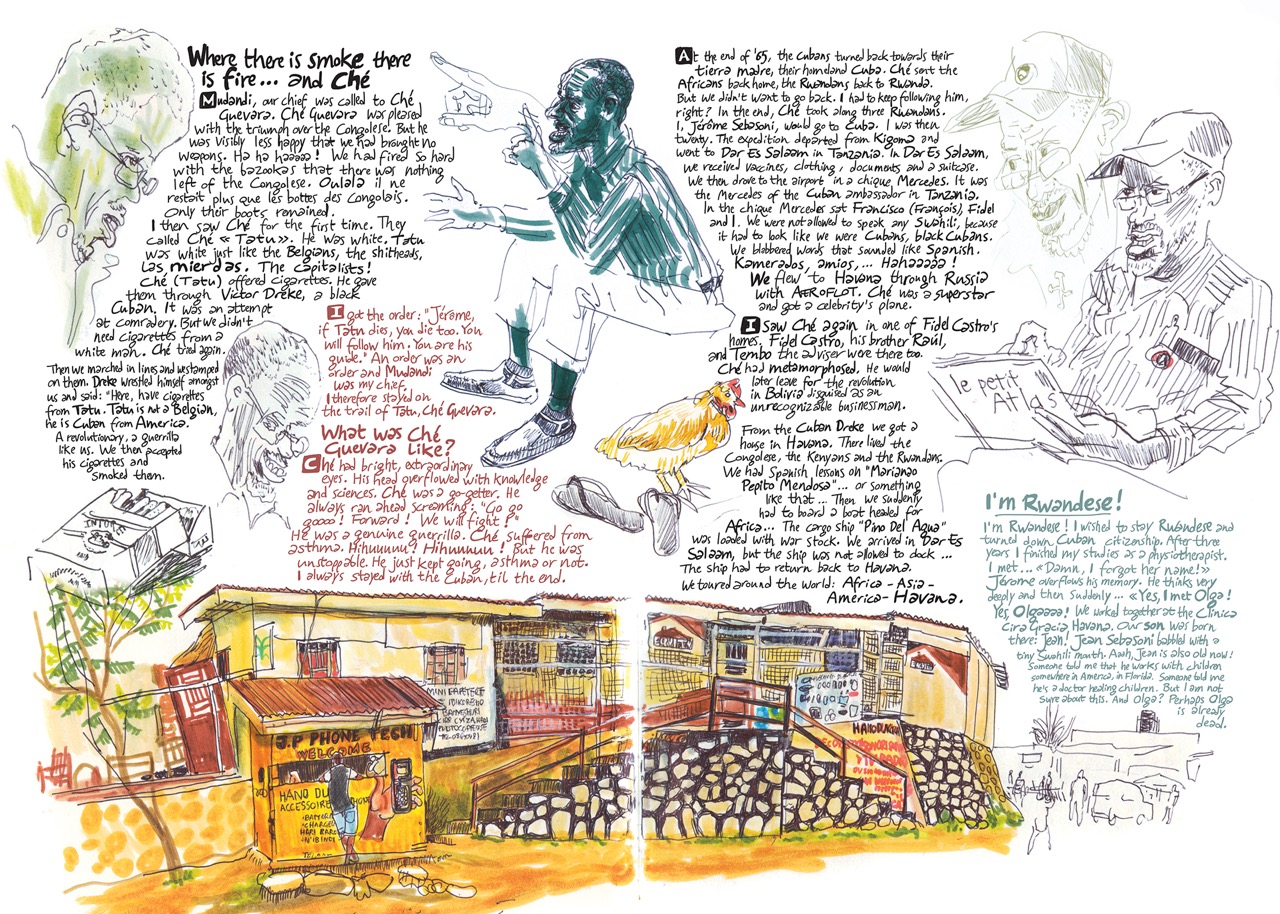 Where there is smoke there
is fire... and Ché
Mudandi, our chief was called to Ché
Guevara. Ché Guevara was pleased
with the triumph over the Congolese. But he
was visibly less happy that we had brought no
weapons. Ha ha haaaa! We had fired so hard
with the bazookas that there was nothing
left of the Congolese. Oulala il ne
restait plus que les bottes des Congolais.
Only their boots remained.
I then saw Ché for the first time. They
called Ché « Tatu ». He was white. Tatu
was white just like the Belgians, the shitheads,
Las mierdas. The Capitalists!
Ché (Tatu) offered cigarettes. He gave
them through Victor Dreke, a black
Cuban. It was an attempt
at comradery. But we didn't
need cigarettes from a
white man. Ché tried again.
Then we marched in lines and we stamped
on them. Dreke wrestled himself amongst
us and said: "Here, have cigarettes
from Tatu. Tatu is not a Belgian,
he is Cuban from America."
A revolutionary, a guerrilla
like us. We then accepted
his cigarettes and
smoked them.
I got the order: "Jérôme,
if Tatu dies, you die too. You
will follow him. You are his
guide." An order was an
order and Mudandi
was my chief.
I therefore stayed on
the trail of Tatu, Ché Guevara.
What was Ché
Guevara Like?
Ché had bright, extraordinary
eyes. His head overflowed with knowledge
and sciences. Ché was a go-getter. He
always ran ahead screaming: "Go go
goooo! Forward! We will fight!"
He was a genuine guerrilla. Ché suffered from
asthma. Hihuuuuu? Hihuuuuu! But he was
unstoppable. He just kept going, asthma or not.
I always stayed with the Cuban, 'til the end.
At the end of '65, the Cubans turned back towards their
tierra madre, their homeland Cuba. Ché sent the
Africans back home, the Rwandans back to Rwanda.
But we didn't want to go back. I had to keep following him,
right? In the end, Ché took along three Rwandans.
I, Jérôme Sebasoni, would go to Cuba. I was then
twenty. The expedition departed from Kigoma and
went to Dar Es Salaam in Tanzania. In Dar Es Salaam,
we received vaccines, clothing, documents and a suitcase.
We then drove to the airport in a chique Mercedes. It was
the Mercedes of the Cuban ambassador in Tanzania.
In the chique Mercedes sat Francisco (François), Fidel
and I. We were not allowed to speak any Swahili, because
it had to look like we were Cubans, black Cubans.
We blabbered words that sounded like Spanish.
Kamerados, amios,... Hahaaaaa!
We flew to Havana through Russia
with AEROFLOT. Ché was a superstar
and got a celebrity's plane.
I saw Ché again in one of Fidel Castro's
homes. Fidel Castro, his brother Raúl,
and Tembo the adviser were there too.
Ché had metamorphosed. He would
later leave for the revolution
in Bolivia disguised as an
unrecognizable businessman.
From the Cuban Dreke we got a
house in Havana. There lived the
Congolese, the Kenyans and the Rwandans.
We had Spanish lessons on "Marianao
Pepito Mendosa"... or something
like that... Then we suddenly
had to board a boat headed for
Africa... The cargo ship "Pino Del Aqua"
was loaded with war stock. We arrived in Dar Es
Salaam, but the ship was not allowed to dock ...
The ship had to return back to Havana.
We toured around the world: Africa - Asia -
America - Havana.
le petit
Atlas
I'm Rwandese!
I'm Rwandese! I wished to stay Rwandese and
turned down Cuban citizenship. After three
years I finished my studies as a physiotherapist.
I met... «Damn, I forgot her name!»
Jérôme overflows his memory. He thinks very
deeply and then suddenly... «Yes, I met Olga!
Yes, Olgaaaa! We worked together at the Clinica
Cira Gracia Havana. Our son was born
there: Jean! Jean Sebasoni babbled with a
tiny Swahili mouth. Aaah, Jean is also old now!
Someone told me that he works with children
somewhere in America, in Florida. Someone told me
he's a doctor healing children. But I am not
sure about this. And Olga? Perhaps Olga
is already
dead.
EQUITY
J.P PHONE TECH
WELCOME
HANO DU
ACCESSOIRE